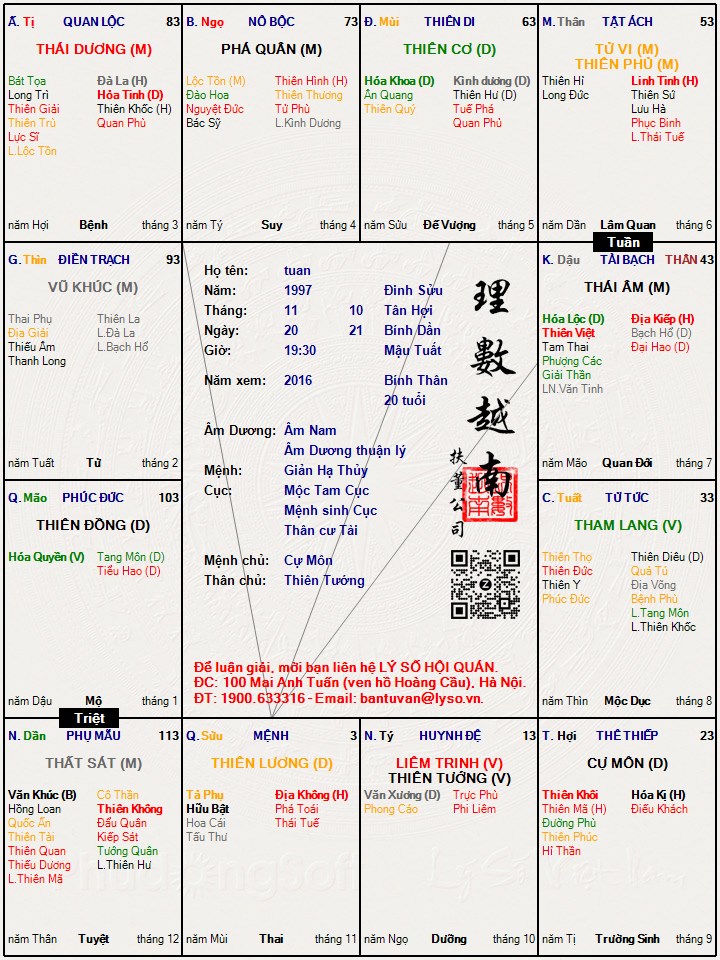 Ấ. Tị QUAN LỘC 83
THÁI DƯƠNG (M)
Bát Tọa Đà La (H)
Long Trì Hỏa Tinh (D)
Thiên Giải Thiên Khốc (H)
Thiên Trù Quan Phù
Lực Sĩ
L.Lộc Tồn
năm Hợi Bệnh tháng 3
B. Ngọ NÔ BỘC 73
PHÁ QUÂN (M)
Lộc Tồn (M) Thiên Hình (H)
Đào Hoa Thiên Thương
Nguyệt Đức Tử Phù
Bác Sỹ L.Kình Dương
năm Tý Suy tháng 4
Đ. Mùi THIÊN DI 63
THIÊN CƠ (D)
Hóa Khoa (D) Kình dương (D)
Ân Quang Thiên Hư (D)
Thiên Quý Tuế Phá
Quan Phủ
năm Sửu Đế Vượng tháng 5
M. Thân TẬT ÁCH 53
TỬ VI (M)
THIÊN PHỦ (M)
Thiên Hỉ Linh Tinh (H)
Long Đức Thiên Sứ
Lưu Hà
Phục Binh
L.Thái Tuế
năm Dần Lâm Quan tháng 6
Tuần
G. Thìn ĐIỀN TRẠCH 93
VŨ KHÚC (M)
Thai Phụ Thiên La
Địa Giải L.Đà La
Thiếu Âm L.Bạch Hổ
Thanh Long
năm Tuất Tử tháng 2
Họ tên: tuan
Năm: 1997 Đinh Sửu
Tháng: 11 10 Tân Hợi
Ngày: 20 21 Bính Dần
Giờ: 19:30 Mậu Tuất
Năm xem: 2016 Bính Thân
20 tuổi
Âm Dương: Âm Nam
Âm Dương thuận lý
Mệnh: Giản Hạ Thủy
Cục: Mộc Tam Cục
Mệnh sinh Cục
Thân cư Tài
Mệnh chủ: Cự Môn
Thân chủ: Thiên Tướng
理數越南
扶董公司
Z
Để luận giải, mời bạn liên hệ LÝ SỐ HỘI QUÁN.
ĐC: 100 Mai Anh Tuấn (ven hồ Hoàng Cầu), Hà Nội.
ĐT: 1900.633316 - Email: bantuvan@lyso.vn.
K. Dậu TÀI BẠCH THÂN 43
THÁI ÂM (M)
Hóa Lộc (D) Địa Kiếp (H)
Thiên Việt Bạch Hổ (D)
Tam Thai Đại Hao (D)
Phượng Các
Giải Thần
LN.Văn Tinh
năm Mão Quan Đới tháng 7
Q. Mão PHÚC ĐỨC 103
THIÊN ĐỒNG (D)
Hóa Quyền (V) Tang Môn (D)
Tiểu Hao (D)
năm Dậu Mộ tháng 1
Triệt
C. Tuất TỬ TỨC 33
THAM LANG (V)
Thiên Thọ Thiên Diêu (D)
Thiên Đức Quả Tú
Thiên Y Địa Võng
Phúc Đức Bệnh Phù
L.Tang Môn
L.Thiên Khốc
năm Thìn Mộc Dục tháng 8
N. Dần PHỤ MẪU 113
THẤT SÁT (M)
Văn Khúc (B) Cô Thần
Hồng Loan Thiên Không
Quốc Ấn Đẩu Quân
Thiên Tài Kiếp Sát
Thiên Quan Tướng Quân
Thiếu Dương L.Thiên Hư
L.Thiên Mã
năm Thân Tuyệt tháng 12
Q. Sửu MỆNH 3
THIÊN LƯƠNG (D)
Tả Phụ Địa Không (H)
Hữu Bật Phá Toái
Hoa Cái Thái Tuế
Tấu Thư
năm Mùi Thai tháng 11
N. Tý HUYNH ĐỆ 13
LIÊM TRINH (V)
THIÊN TƯỚNG (V)
Văn Xương (D) Trực Phù
Phong Cáo Phi Liêm
năm Ngọ Dưỡng tháng 10
T. Hợi THÊ THIẾP 23
CỰ MÔN (D)
Thiên Khôi Hóa Kị (H)
Thiên Mã (H) Điếu Khách
Đường Phù
Thiên Phúc
Hỉ Thần
năm Tị Trường Sinh tháng 9